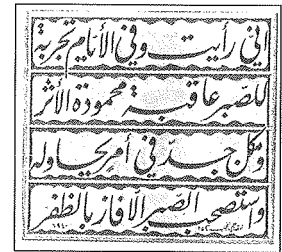 اني رأيت وفي الأيام تجربة
للصبر عاقبة محمودة الأثر
وكل من جد في أمر يحاوله
واستصحب الصبر الا فاز بالظفر